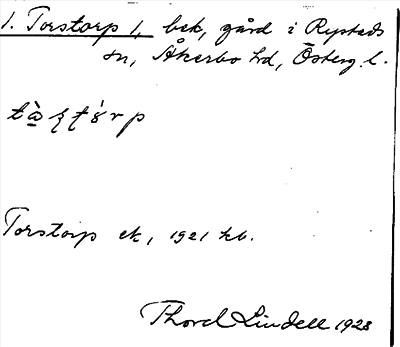 1. Torstorp 1, bek, gård i Rystads
sn, Åkerbo hd, Österg. l.
Torstorp ek, 1921 kb.
Thord Lindell 1928